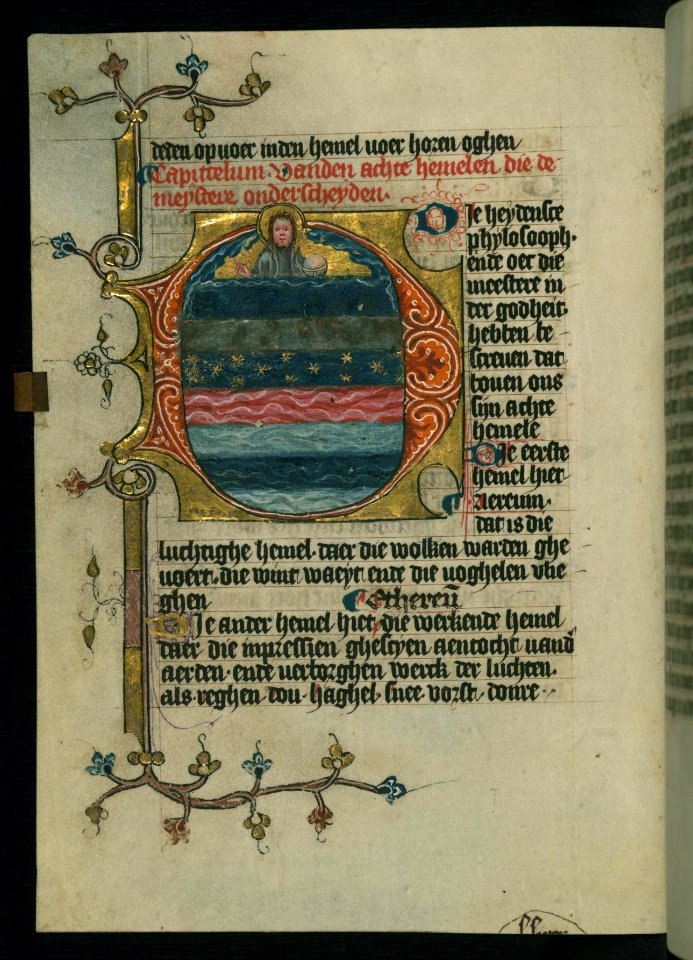 deden op voer inden hemel voer horen oghen
Capittelum. Vanden achte hemelen die de
meystere onderscheyden.
Die heydensce
phylosooph.
ende oec die
meestere in
der godheit.
hebben be
screuen dat
bouen ons
sijn achte
hemele
Die eerste
hemel hiet
Aereum.
dat is die
luchtighe hemel. daer die wolken warden ghe
voert. die wint waeyt ende die voghelen vlie
ghen Ethereū
Die ander hemel hiet. die werkende hemel
daer die inpressien ghescyen aentocht vand
aerden. ende verborghen werck der luchten.
als reghen dou. haghel. snee vorst. donre